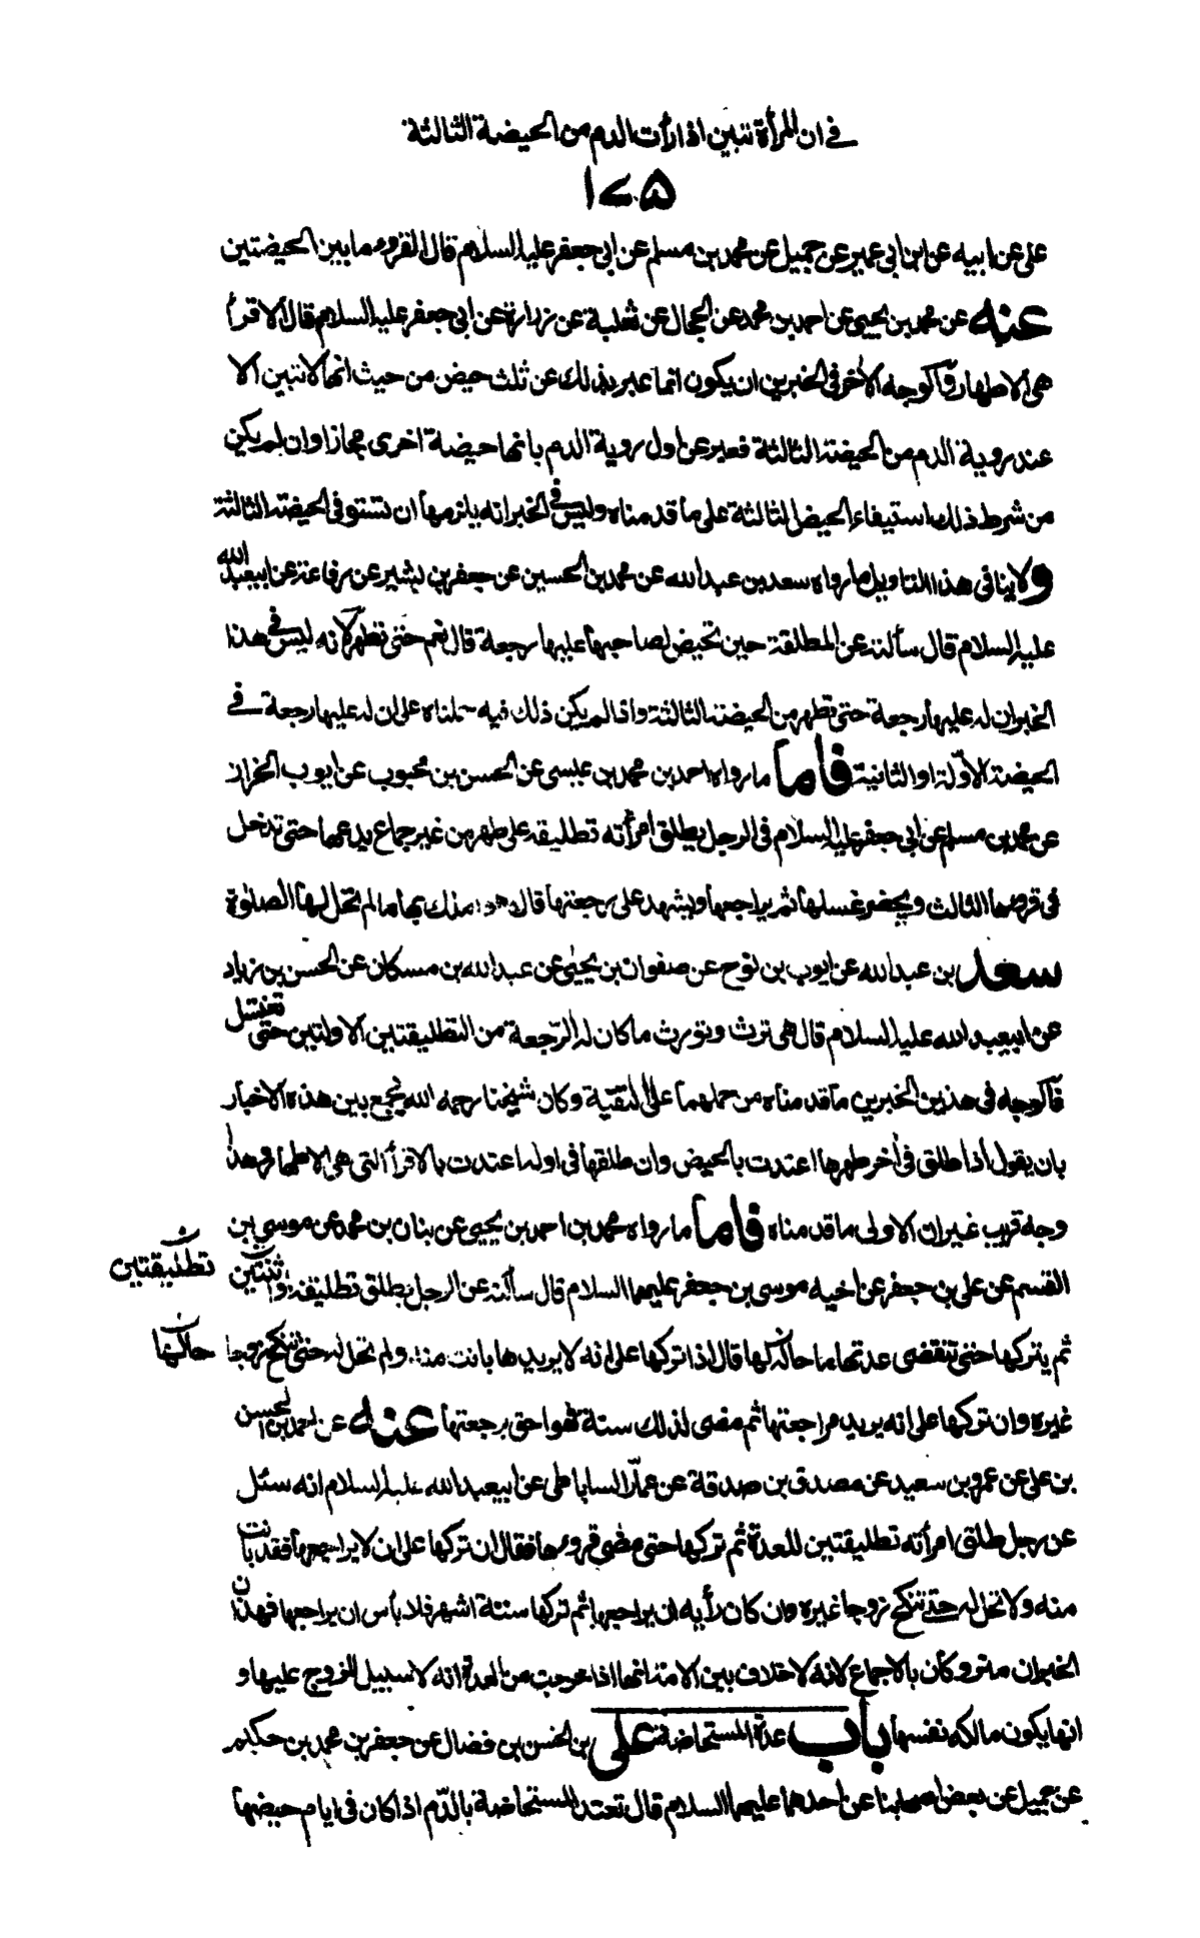 في ان المرأة تبين اذا رأت الدم من الحيضة الثالثة
١٧٥
على عن ابيه عن ابن ابي عمير عن جميل عن محمد بن مسلم عن ابي جعفر عليه السلام قال القروء ما بين الحيضتين
عنه عن محمد بن يحيى عن احمد بن محمد عن الحجال عن ثعلبة عن زرارة عن ابي جعفر عليه السلام قال الاقرأ
هي الاطهار فآلوجه الآخر في الخبرين ان يكون انما عبر بذلك عن ثلث حيض من حيث انها لا تبين الا
عند روية الدم من الحيضة الثالثة فعبر عن اول روية الدم بانها حيضة اخرى مجازا وان لم يكن
من شرط ذلك استيفاء الحيض الثالثة على ما قدمناه وليس في الخبر انه يلزمها ان تستوفى الحيضة الثالثة
ولا ينافى هذا التاويل ما رواه سعد بن عبد الله عن محمد بن الحسين عن جعفر بن بشير عن رفاعة عن ابيعبد الله
عليه السلام قال سألته عن المطلقة حين تحيض لصاحبها عليها رجعة قال نعم حتى تطهر لانه ليس في هذا
الخبر ان له عليها رجعة حتى تطهر من الحيضة الثالثة واذا لم يكن ذلك فيه حملناه على ان له عليها رجعة في
الحيضة الاولة او الثانية فاما ما رواه احمد بن محمد بن عيسى عن الحسن بن محبوب عن ايوب الخزاز
عن محمد بن مسلم عن ابي جعفر عليه السلام في الرجل يطلق امرأته تطليقة على طهر من غير جماع يدعها حتى تدخل
في قرءها الثالث ويحضر غسلها ثم يراجعها ويشهد على رجعتها قال هو املك بها ما لم تحل لها الصلوة
سعد بن عبد الله عن ايوب بن نوح عن صفوان بن يحيى عن عبد الله بن مسكان عن الحسن بن زياد
عن ابيعبد الله عليه السلام قال هي ترث وتورث ما كان له الرجعة من التطليقتين الاولتين حتى تغتسل
فآلوجه في هذين الخبرين ما قدمناه من حملهما على التقية وكان شيخنا رحمه الله يجمع بين هذه الاخبار
بان يقول اذا طلق في آخر طهرها اعتدت بالحيض وان طلقها في اوله اعتدت بالاقرأ التي هي الاطهار وهذا
وجه قريب غير ان الاولى ما قدمناه فاما ما رواه محمد بن احمد بن يحيى عن بنان بن محمد عن موسى بن
القسم عن على بن جعفر عن اخيه موسى بن جعفر عليهما السلام قال سألته عن الرجل يطلق تطليقة او اثنتين تطليقتين
ثم يتركها حتى تنقضى عدتها ما حالها قال اذا تركها على انه لا يريدها بانت منه ولم تحل له حتى تنكح زوجا حالها
غيره وان تركها على انه يريد مراجعتها ثم مضى لذلك سنة فهو احق برجعتها عنه عن احمد بن الحسن
بن على عن عمرو بن سعيد عن مصدق بن صدقة عن عمار الساباطى عن ابيعبد الله عليه السلام انه سئل
عن رجل طلق امرأته تطليقتين للعدة ثم تركها حتى مضى قروءها فقال ان تركها على ان لا يراجعها فقد بانت
منه ولا تحل له حتى تنكح زوجا غيره وان كان رأيه ان يراجعها ثم تركها ستة اشهر فلا بأس ان يراجعها فهذان
الخبران متروكان بالاجماع لانه لا خلاف بين الامة انها اذا خرجت من العدة انه لا سبيل للزوج عليها و
انها يكون مالكه نفسها باب عدة المستحاضة على بن الحسن بن فضال عن جعفر بن محمد بن حكيم
عن جميل عن بعض اصحابنا عن احدهما عليهما السلام قال تعتد المستحاضة بالدم اذا كان في ايام حيضها